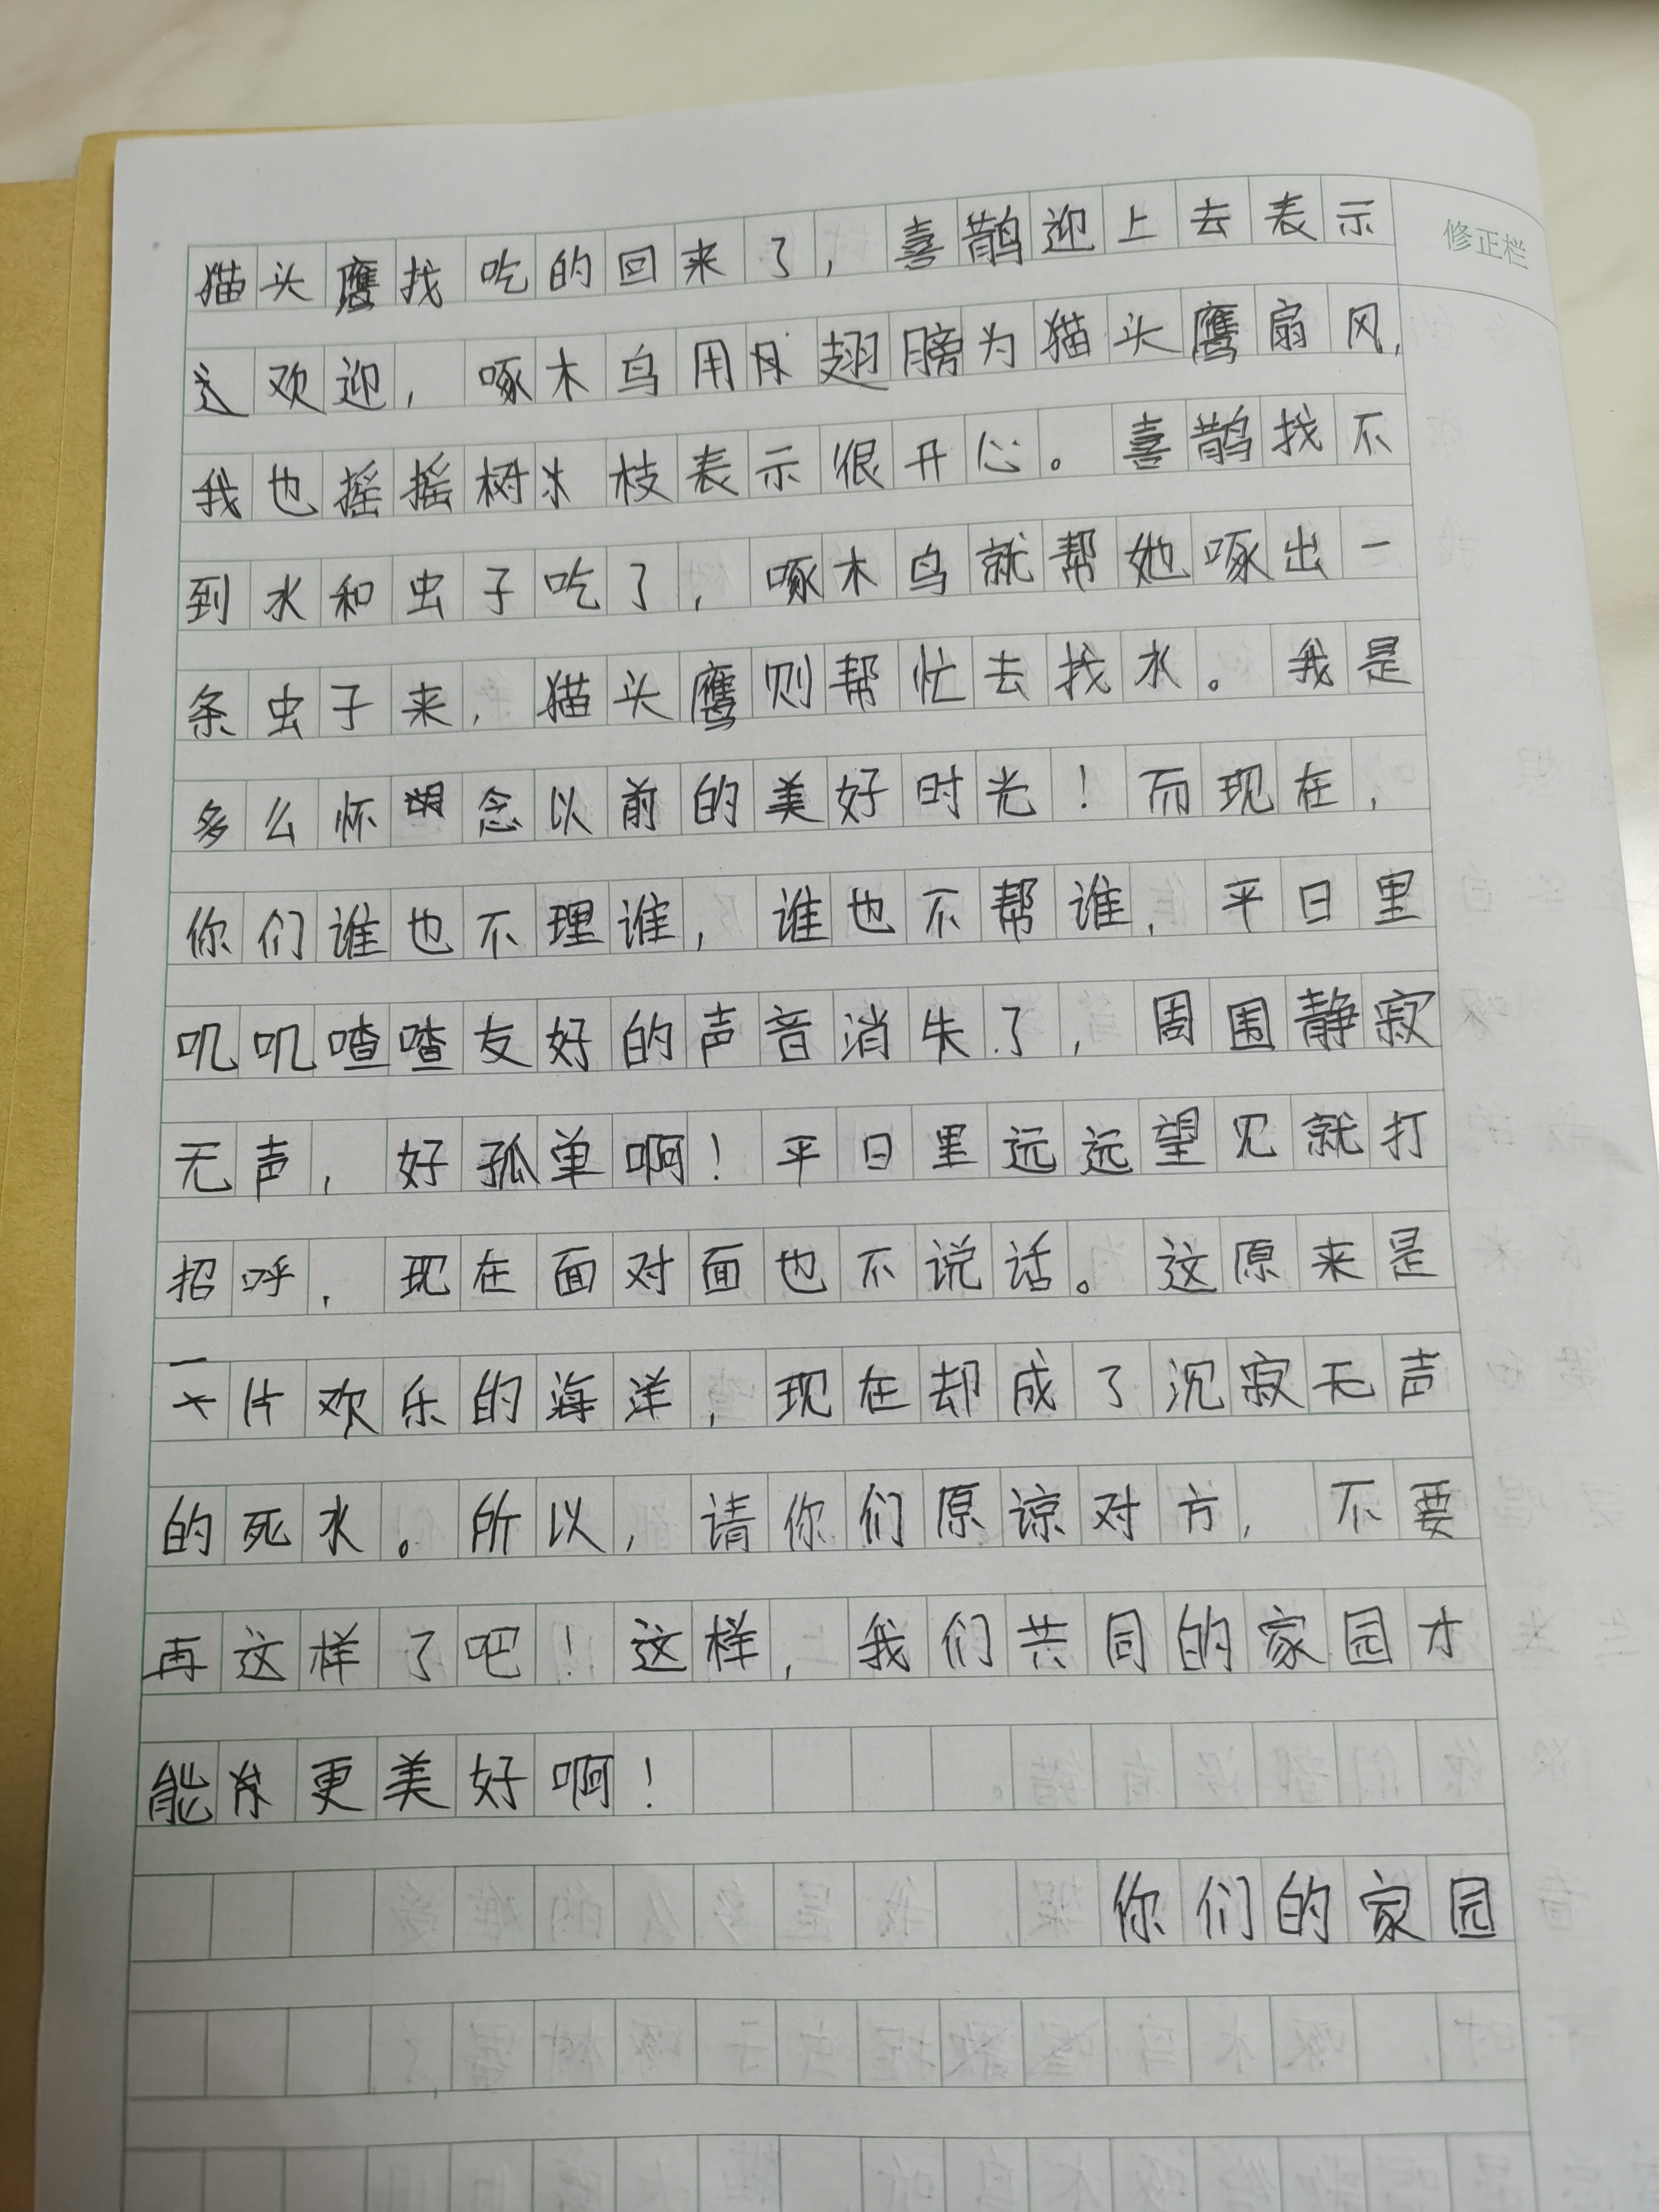 修正栏
猫头鹰找吃的回来了，喜鹊迎上去表示
欢迎，啄木鸟用翅膀为猫头鹰扇风，
我也摇摇树枝表示很开心。喜鹊找不
到水和虫子吃了，啄木鸟就帮她啄出一
条虫子来，猫头鹰则帮忙去找水。我是
多么怀念以前的美好时光！而现在，
你们谁也不理谁，谁也不帮谁，平日里
叽叽喳喳友好的声音消失了，周围静寂
无声，好孤单啊！平日里远远望见就打
招呼，现在面对面也不说话。这原来是
一片欢乐的海洋，现在却成了沉寂无声
的死水。所以，请你们原谅对方，不要
再这样了吧！这样，我们共同的家园才
能更美好啊！
你们的家园